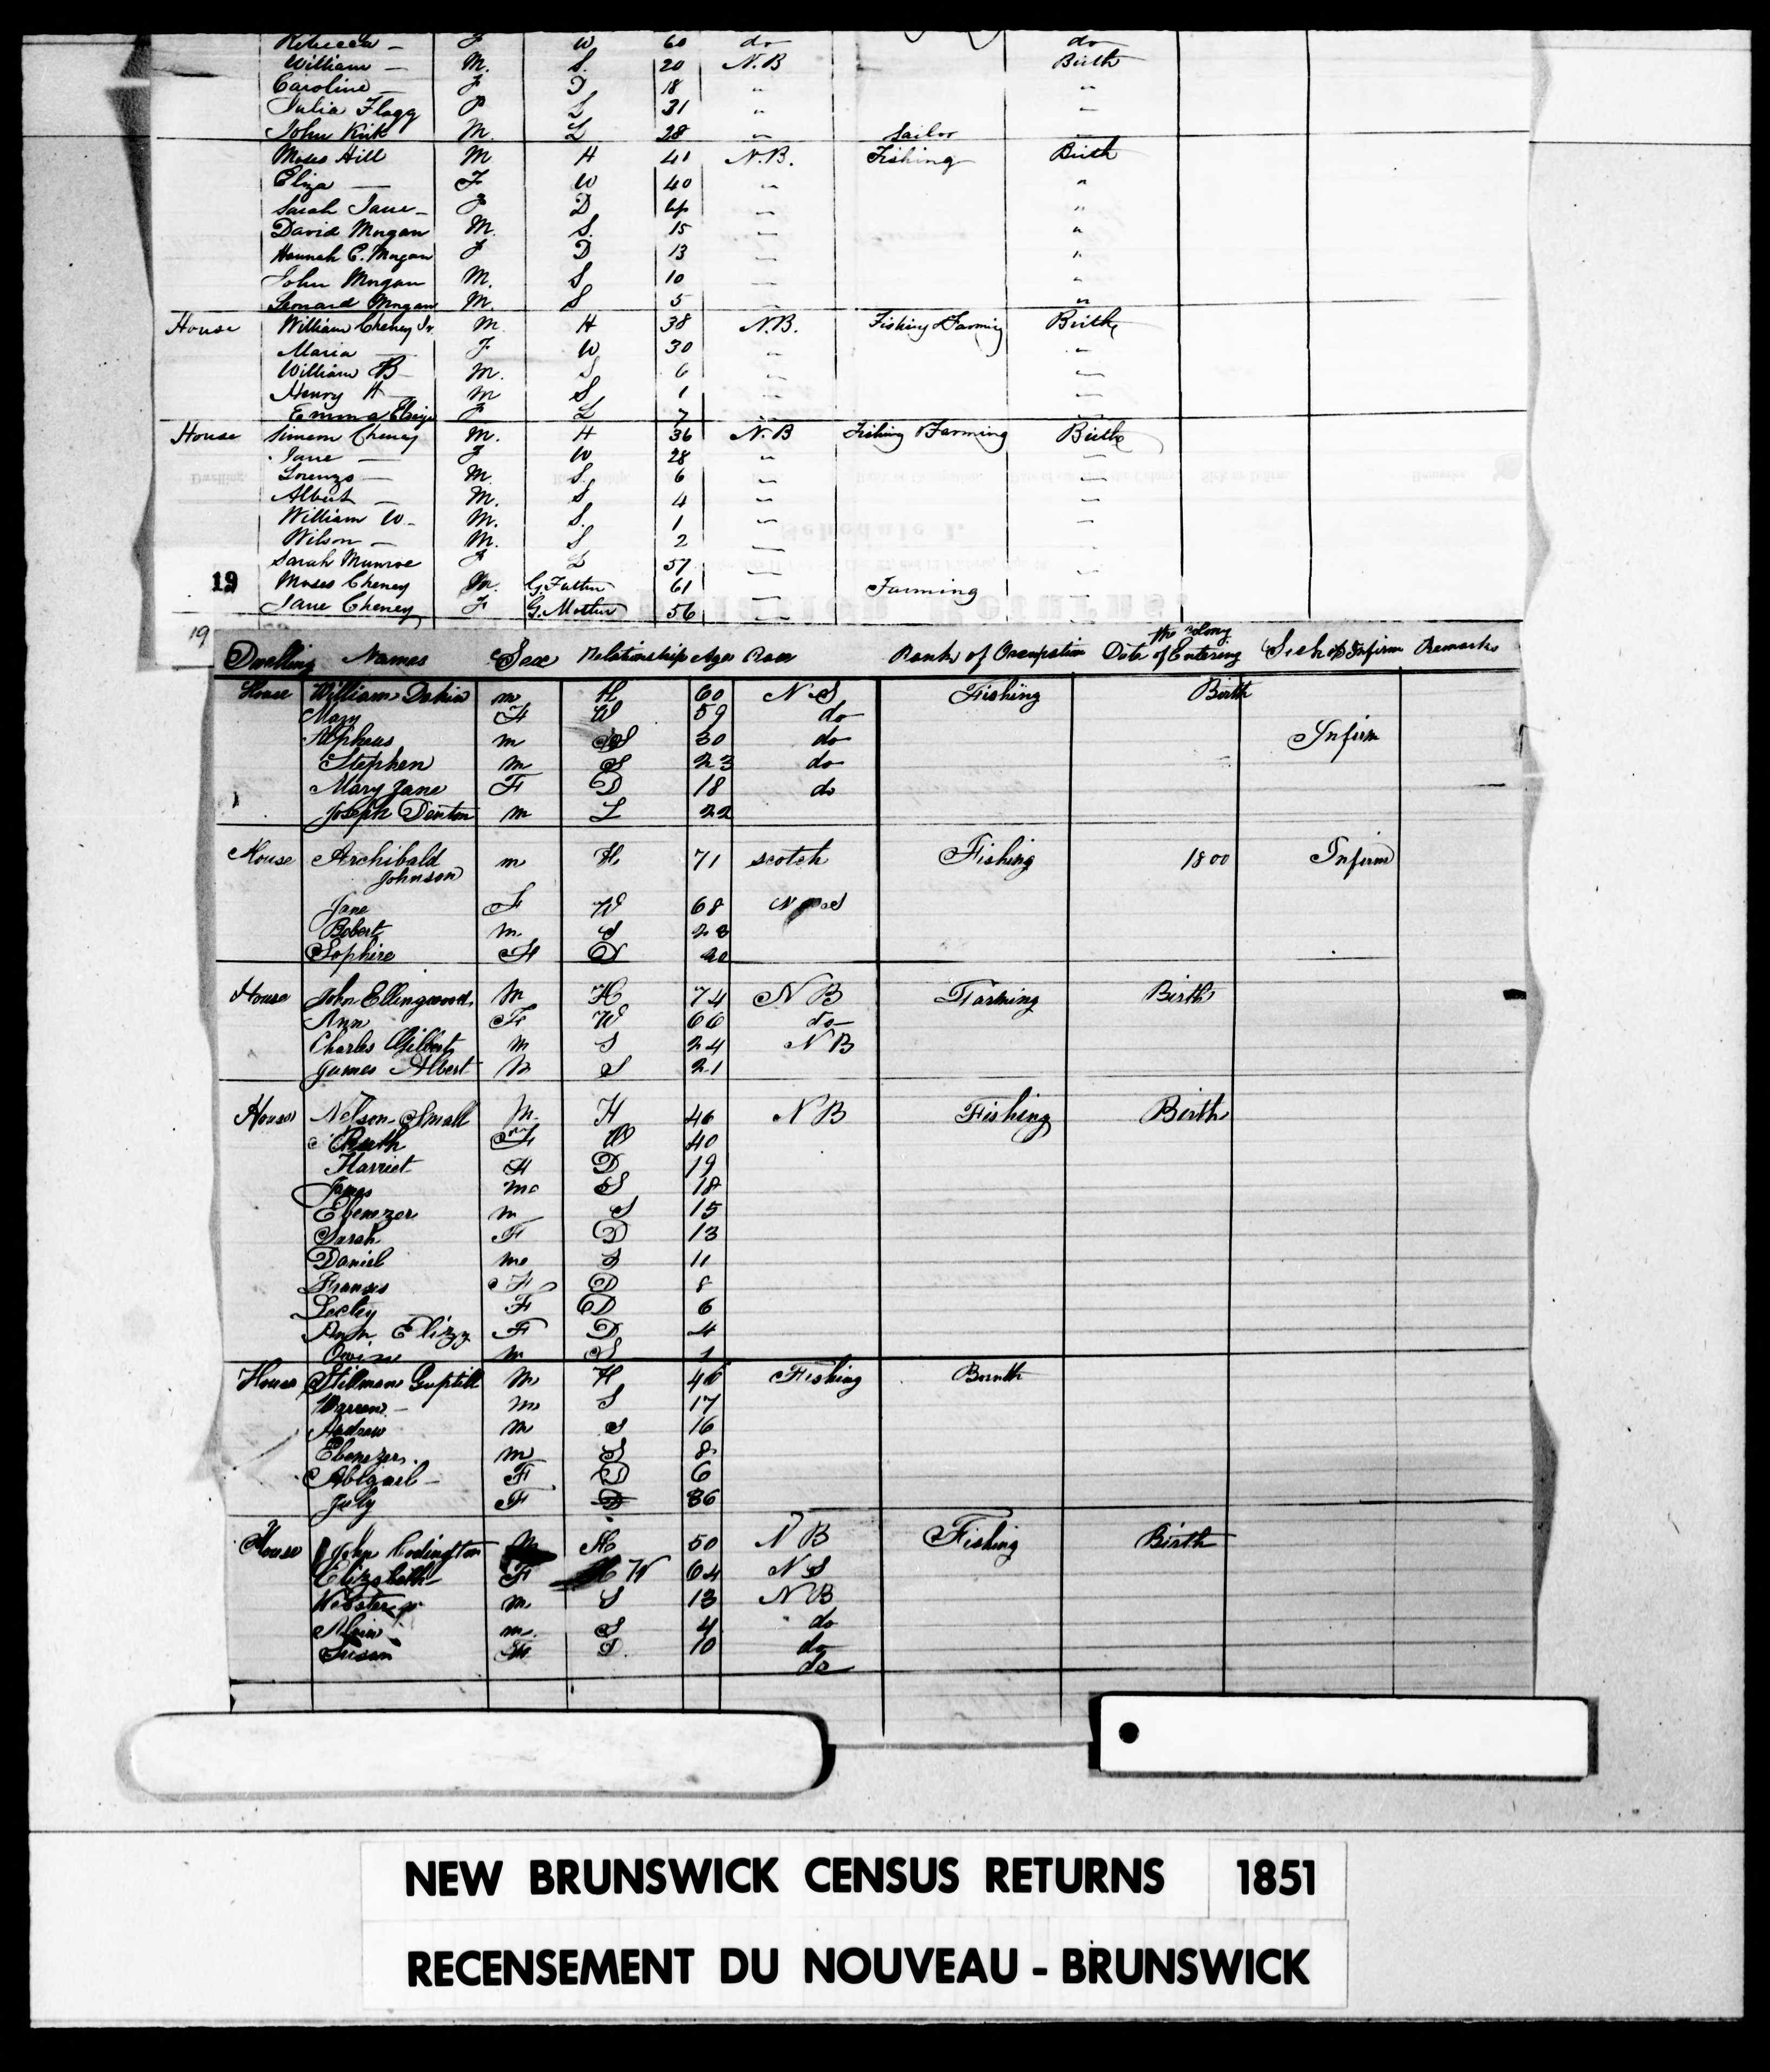 Rebecca — F W 60 do do
William — M. S. 20 N.B Birth
Caroline — F D 18 " "
Julia Flagg F L 31 " "
John Kirk M. L 28 " Sailor
Moses Hill M H 41 N.B. Fishing Birth
Eliza — F W 40 " "
Sarah Jane — F D " "
David Morgan M. S. 15 " "
Hannah E. Morgan F D 13 " "
John Morgan M. S 10 " "
Leonard Morgan M. S 5 " "
House William Cheney Jr. M. H 38 N.B. Fishing & Farming Birth
Maria — F W 30 " "
William B — M. S 6 " "
Henry H M S 1 " "
Emma F L 7 " "
House Simeon Cheney M. H 36 N.B Fishing & Farming Birth
Jane — F W 28 " "
Lorenzo — M. S. 6 " "
Albert — M. S 4 " "
William W — M. S. 1 " "
Wilson — M. S 2 " "
Sarah Munroe F L 57 " "
19 Moses Cheney M. G. Father 61 " Farming "
Jane Cheney F G. Mother 56 " "
19
the Colony
Dwelling Names Sex Relationship Ages Race Rank of Occupation Date of Entering Sick or Infirm Remarks
House William Dakin m H 60 N S Fishing Birth
Mary F W 59 do
Alpheus m S 30 do Infirm
Stephen m S 23 do
Mary Jane F D 18 do
Joseph Denton m L 22
House Archibald m H 71 scotch Fishing 1800 Infirm
Johnson
Jane F W 68 N S
Robert m. S 28
Sophire F D 20
House John Ellingwood M H 74 N B Farming Birth
Ann F W 66 do
Charles Gilbert m S 24 N B
James Albert m S 21
House Nelson Small M. H 46 N B Fishing Birth
Ruth F W 40
Harriet F D 19
James m S 18
Ebenezer m S 15
Sarah F D 13
Daniel m S 11
Frances F D 8
Lecley F D 6
Ann Elizz F D 4
m S 1
House Stillman Guptill M H 46 Fishing Bearth
Warren — m S 17
Andrew m S 16
Ebenezer. m S 8
Abigael — F D 6
July F D 36
House John Codington M H 50 N B Fishing Birth
Elizabeth F W 64 N S
Webster m S 13 N B
Alvin m. S 4 do
Susan F D. 10 do
do
NEW BRUNSWICK CENSUS RETURNS 1851
RECENSEMENT DU NOUVEAU - BRUNSWICK